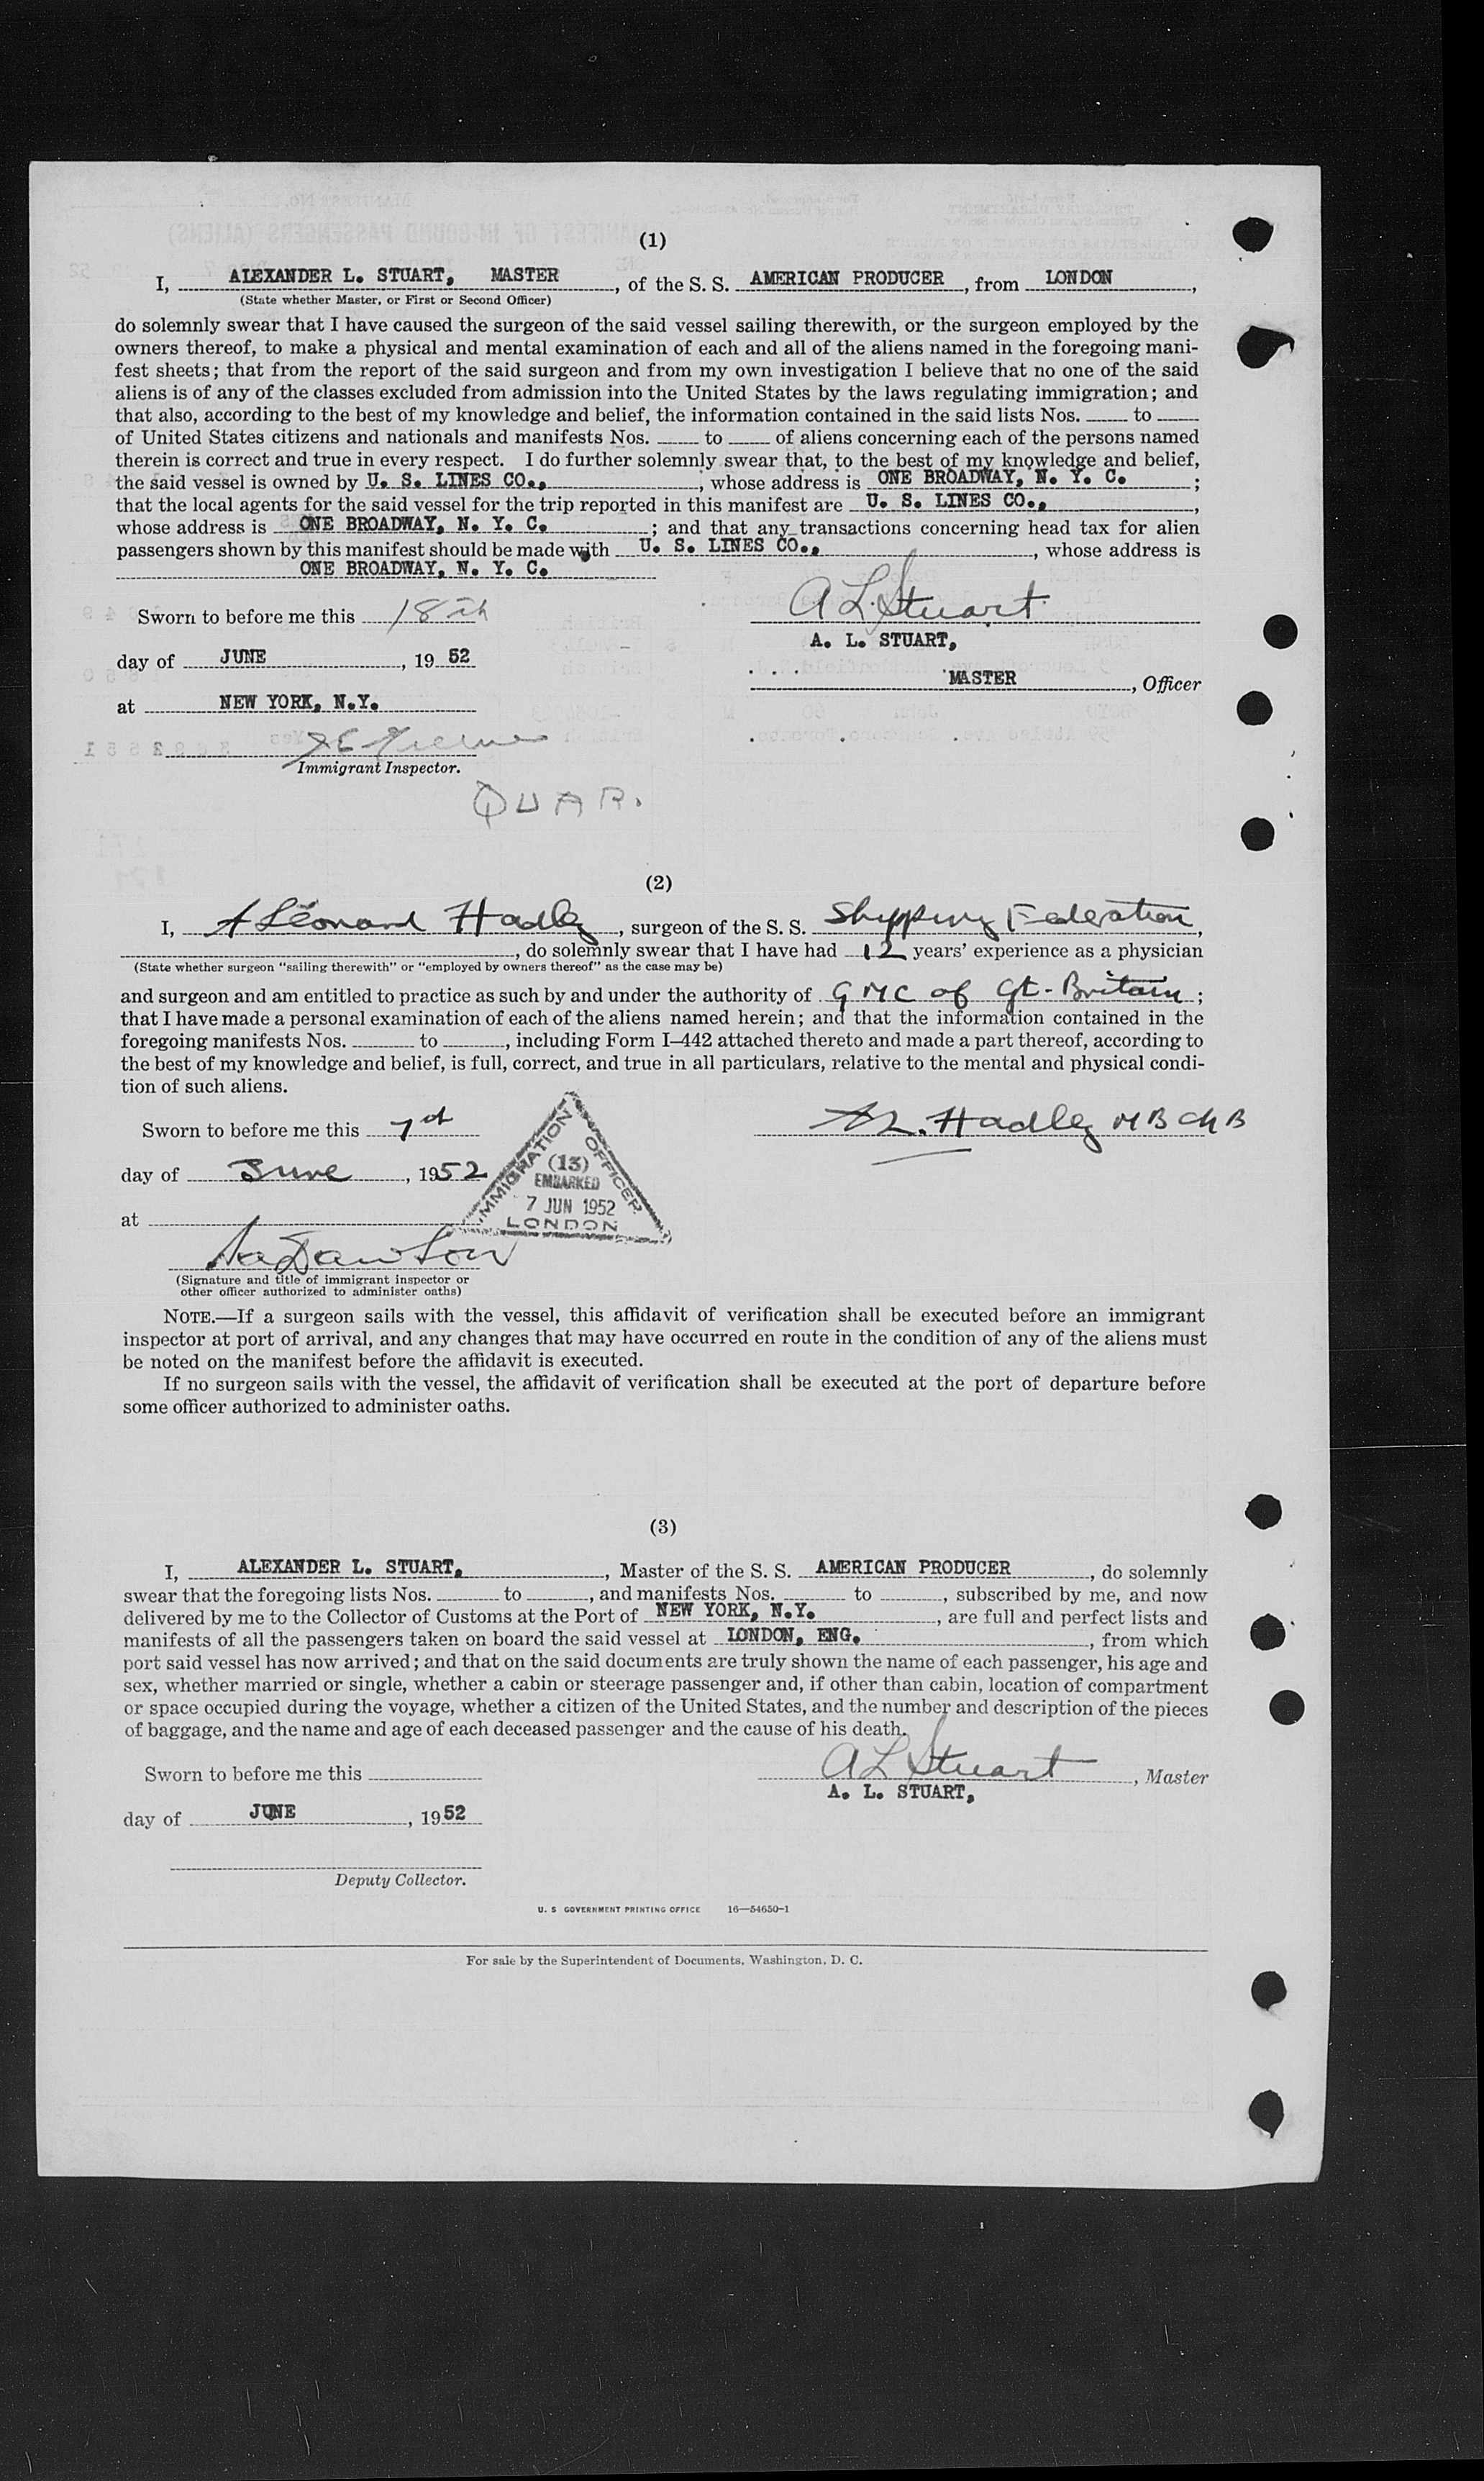 (1)
I, ALEXANDER L. STUART, MASTER, of the S. S. AMERICAN PRODUCER, from LONDON,
(State whether Master, or First or Second Officer)
do solemnly swear that I have caused the surgeon of the said vessel sailing therewith, or the surgeon employed by the
owners thereof, to make a physical and mental examination of each and all of the aliens named in the foregoing mani-
fest sheets; that from the report of the said surgeon and from my own investigation I believe that no one of the said
aliens is of any of the classes excluded from admission into the United States by the laws regulating immigration; and
that also, according to the best of my knowledge and belief, the information contained in the said lists Nos. ____ to ____
of United States citizens and nationals and manifests Nos. ____ to ____ of aliens concerning each of the persons named
therein is correct and true in every respect. I do further solemnly swear that, to the best of my knowledge and belief,
the said vessel is owned by U. S. LINES CO., , whose address is ONE BROADWAY, N. Y. C. ;
that the local agents for the said vessel for the trip reported in this manifest are U. S. LINES CO., ,
whose address is ONE BROADWAY, N. Y. C. ; and that any transactions concerning head tax for alien
passengers shown by this manifest should be made with U. S. LINES CO., , whose address is
ONE BROADWAY, N. Y. C.
Sworn to before me this 18th
A L Stuart
A. L. STUART,
day of JUNE, 19 52
MASTER, Officer
at NEW YORK, N.Y.
Immigrant Inspector.
QUAR.
(2)
I, A Leonard Hadley, surgeon of the S. S. Shipping Federation,
, do solemnly swear that I have had 12 years' experience as a physician
(State whether surgeon "sailing therewith" or "employed by owners thereof" as the case may be)
and surgeon and am entitled to practice as such by and under the authority of G M C of Gt. Britain;
that I have made a personal examination of each of the aliens named herein; and that the information contained in the
foregoing manifests Nos. ____ to ____, including Form I-442 attached thereto and made a part thereof, according to
the best of my knowledge and belief, is full, correct, and true in all particulars, relative to the mental and physical condi-
tion of such aliens.
Sworn to before me this 7st
A L. Hadley M B Ch B
day of June, 1952
at
IMMIGRATION OFFICER
(13)
EMBARKED
7 JUN 1952
LONDON
(Signature and title of immigrant inspector or
other officer authorized to administer oaths)
NOTE.—If a surgeon sails with the vessel, this affidavit of verification shall be executed before an immigrant
inspector at port of arrival, and any changes that may have occurred en route in the condition of any of the aliens must
be noted on the manifest before the affidavit is executed.
If no surgeon sails with the vessel, the affidavit of verification shall be executed at the port of departure before
some officer authorized to administer oaths.
(3)
I, ALEXANDER L. STUART, , Master of the S. S. AMERICAN PRODUCER, do solemnly
swear that the foregoing lists Nos. ____ to ____, and manifests Nos. ____ to ____, subscribed by me, and now
delivered by me to the Collector of Customs at the Port of NEW YORK, N.Y. , are full and perfect lists and
manifests of all the passengers taken on board the said vessel at LONDON, ENG. , from which
port said vessel has now arrived; and that on the said documents are truly shown the name of each passenger, his age and
sex, whether married or single, whether a cabin or steerage passenger and, if other than cabin, location of compartment
or space occupied during the voyage, whether a citizen of the United States, and the number and description of the pieces
of baggage, and the name and age of each deceased passenger and the cause of his death.
Sworn to before me this
A L Stuart, Master
A. L. STUART,
day of JUNE, 1952
Deputy Collector.
U. S GOVERNMENT PRINTING OFFICE 16—54650-1
For sale by the Superintendent of Documents, Washington, D. C.